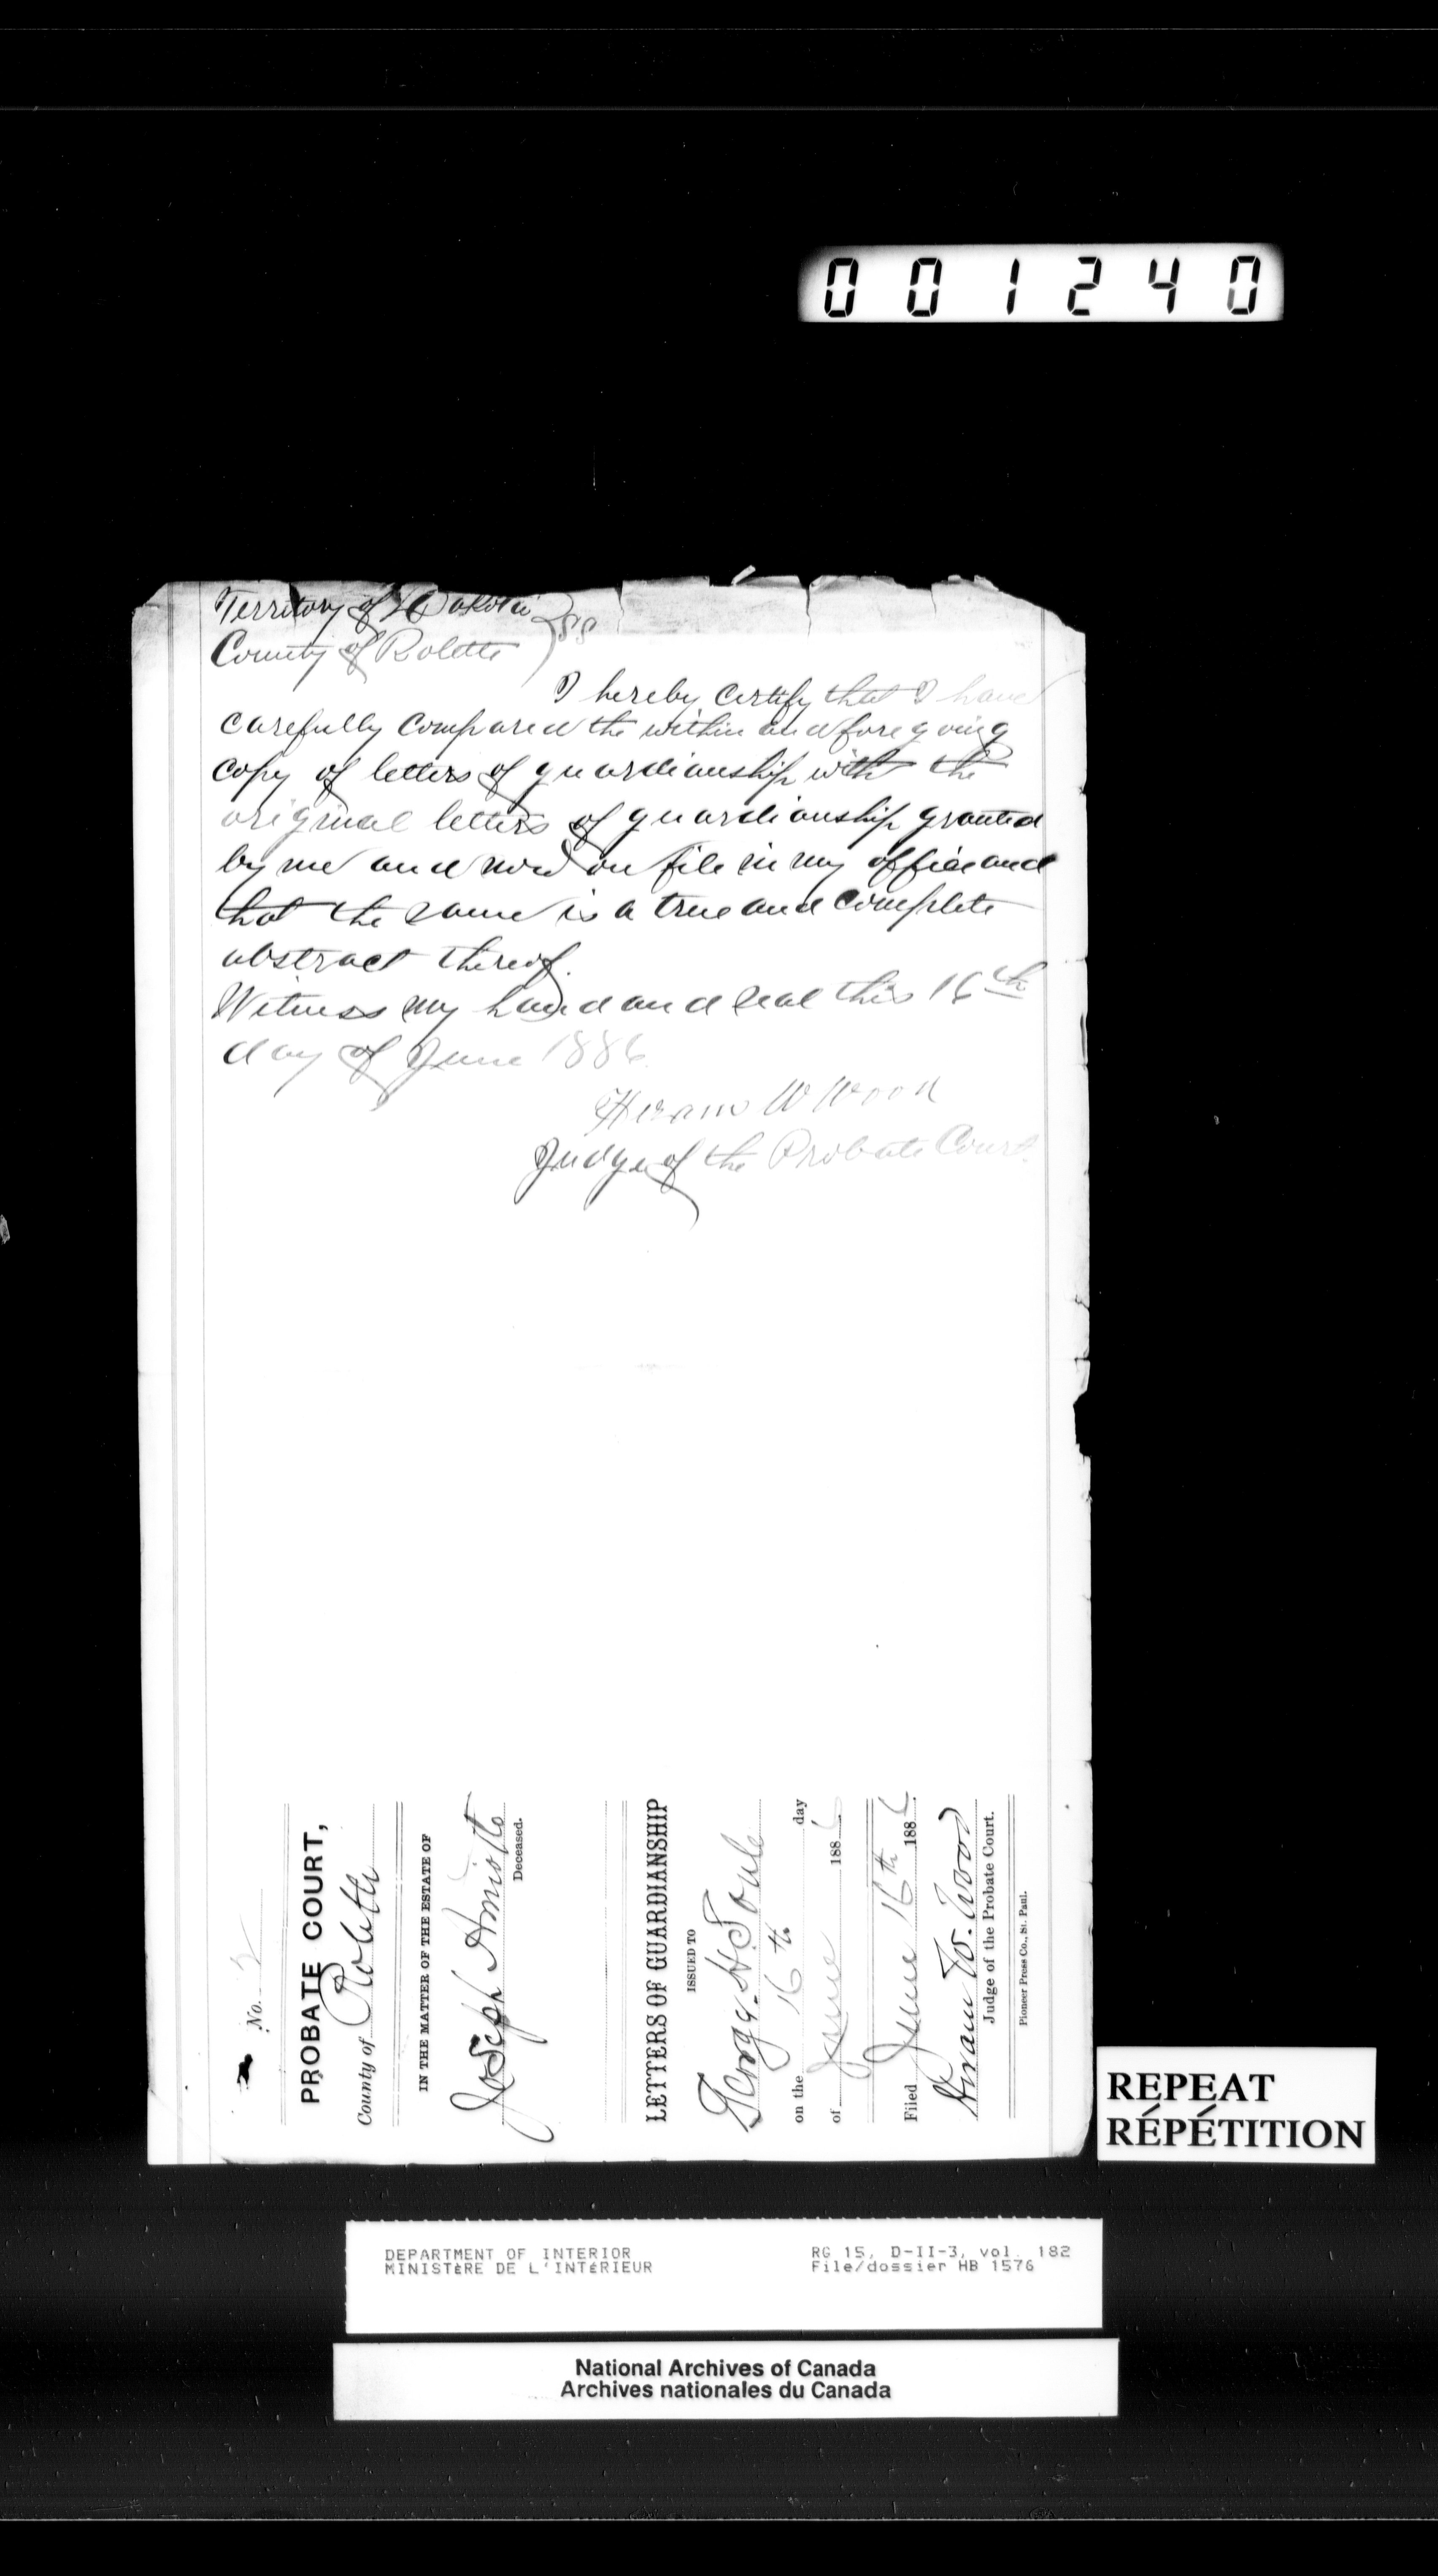 001240
Territory of Dakota } SS
County of Rolette
I hereby certify that I have
carefully compared the within and foregoing
copy of letters of guardianship with the
original letters of guardianship granted
by me and now on file in my office and
that the same is a true and complete
abstract thereof.
Witness my hand and seal this 16th
day of June 1886.
Hiram W Wood
Judge of the Probate Court.
No. 2
PROBATE COURT,
County of Rolette
IN THE MATTER OF THE ESTATE OF
Joseph
Deceased.
LETTERS OF GUARDIANSHIP
ISSUED TO
George H.
on the 16th day
of June 1886
Filed June 16th 1886
Hiram W. Wood
Judge of the Probate Court.
Pioneer Press Co., St. Paul.
REPEAT
RÉPÉTITION
DEPARTMENT OF INTERIOR RG 15, D-II-3, vol. 182
MINISTÈRE DE L'INTÉRIEUR File/dossier HB 1576
National Archives of Canada
Archives nationales du Canada